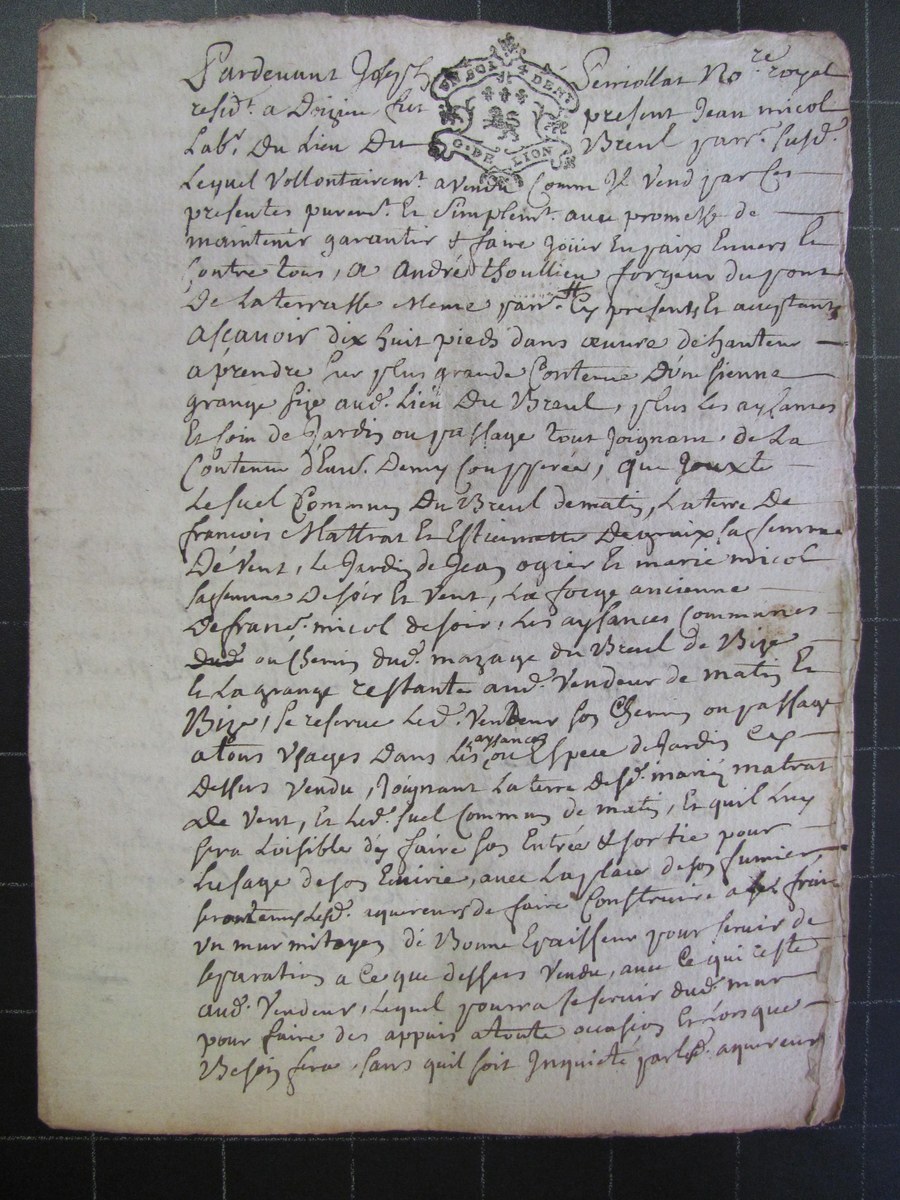 Pardevant Joseph Perriollat No.re royal
UN SOL 4 DEN.
G. DE LION
resid.t a Doizieu fut present Jean micol
Lab.r Du Lieu Du Breul parr.e susd.e
Lequel Vollontairem.t a vendu Comm Il vend par Ces
presentes purem.t Et simplem.t avec promesse de
maintenir garantir & faire Joüir En paix Envers Et
Contre tous, a André thoullieu forgeur du pont
De La terrasse Meme parr.e Icy present Et acceptant
ascavoir dix huit pieds dans œuvre de hauteur
a prendre sur plus grande Contenue D'Une sienne
grange size aud. Lieu Du Breul, plus Les aysances
Et soin de Jardin ou passage tout Joignant, de La
Contenue d'Env. Demy Coupperée, que Jouxte
Le suel Commun Du Breul de matin, La terre De
francois Mattrat Et Estiennette sa femme
De Vent, Le Jardin de Jean ogier Et marie micol
sa femme De soir Et Vent, La forge ancienne
De franc. micol de soir, Les aysances Communes
dud. ou Chemin dud. mazage du Breul de Bize
Et La grange restante aud. Vendeur de matin Et
Bize, se reserve Led. Vendeur son Chemin ou passage
a tous Usages Dans Les aysances ou Espece de Jardin Cy
Dessus Vendu, Joignant La terre Desd. mariés matrat
De Vent, Et Led. suel Commun de matin, Et quil Luy
sera Loisible d'y faire son Entrée & sortie pour
Lusage de son Ecuirie, avec La place de son fumier
seront tenus Lesd. aquereurs de faire Construire a ses frais
Un mur mitoyen de Bonne Epaisseur pour servir de
separation a Ce que dessus Vendu, avec Ce qui reste
aud. Vendeur, Lequel pourra se servir dud. mur
pour faire des appuis a toute occasion Et Lorsque
Besoin sera, sans quil soit Inquieté par Led. aquereur